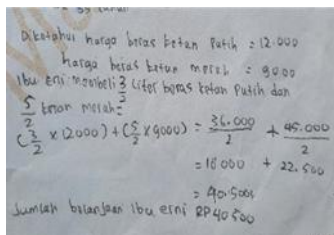 Diketahui harga beras ketan Putih = 12.000
harga beras ketan merah = 9000
Ibu erni membeli 3/2 liter beras ketan Putih dan
5/2 ketan merah =
(3/2 x 12000) + (5/2 x 9000) = 36.000/2 + 45.000/2
= 18 000 + 22.500
= 40.500
Jumlah belanjaan Ibu erni RP 40 500